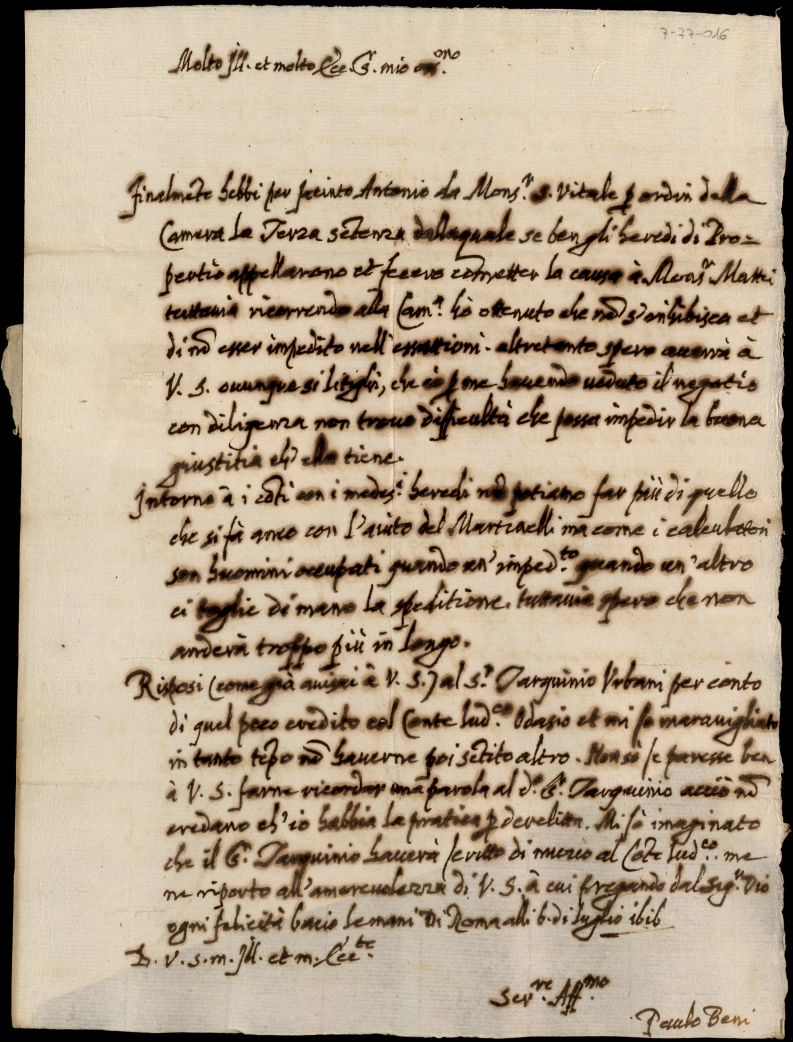 7-77-016
Molto Ill. et molto Ecc. Sr. mio oss.mo
Finalmẽte hebbi per Jacinto Antonio da Mons.r S. Vitale p ordin della
Camera la Terza sẽtenza dallaquale se ben gli heredi di Pro=
pertio appellarono et fecero cõmetter la causa à Mons.r Mattei
tuttavia ricorrendo alla Cam.a hò ottenuto che nõ s'inhibisca et
di nõ esser impedito nell'essattioni. altretanto spero averrà à
V. S. ovunque si litighi, che io p me havendo veduto il negotio
con diligenza non trovo difficultà che possa impedir la buona
giustitia ch'ella tiene.
Intorno à i cõti con i medes.i heredi nõ potiamo far più di quello
che si fà anco con l'aiuto del Martinelli ma come i calculatori
son huomini occupati quando un'imped.to quando un'altro
ci toglie di mano la speditione. tuttavia spero che non
anderà troppo più in longo.
Risposi (come già avisai à V. S.) al S.r Tarquinio Urbani per conto
di quel poco credito col Conte Lud.co Odasio et mi fo maravigliato
in tanto tẽpo nõ haverne poi sẽtito altro. Non sò se paresse ben
à V. S. farne ricordar una parola al d.o S. Tarquinio acciò nõ
credano ch'io habbia la pratica p derelitta. Mi fò imaginato
che il S. Tarquinio haverà scritto di nuovo al Cõte Lud.co. me
ne riporto all'amorevolezza di V. S. à cui pregando dal Sig.r Dio
ogni felicità bacio le mani Di Roma alli 6. di luglio 1616
D. V. S. m. Ill. et m. Ecc.te
Ser.re Aff.mo
Paulo Beni